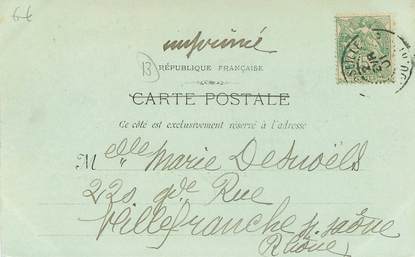 6€
imprimé
13
RÉPUBLIQUE FRANÇAISE
CARTE POSTALE
Ce côté est exclusivement réservé à l'adresse
Melle Marie Desnoëls
220 gde Rue
Villefranche s. saône
Rhône